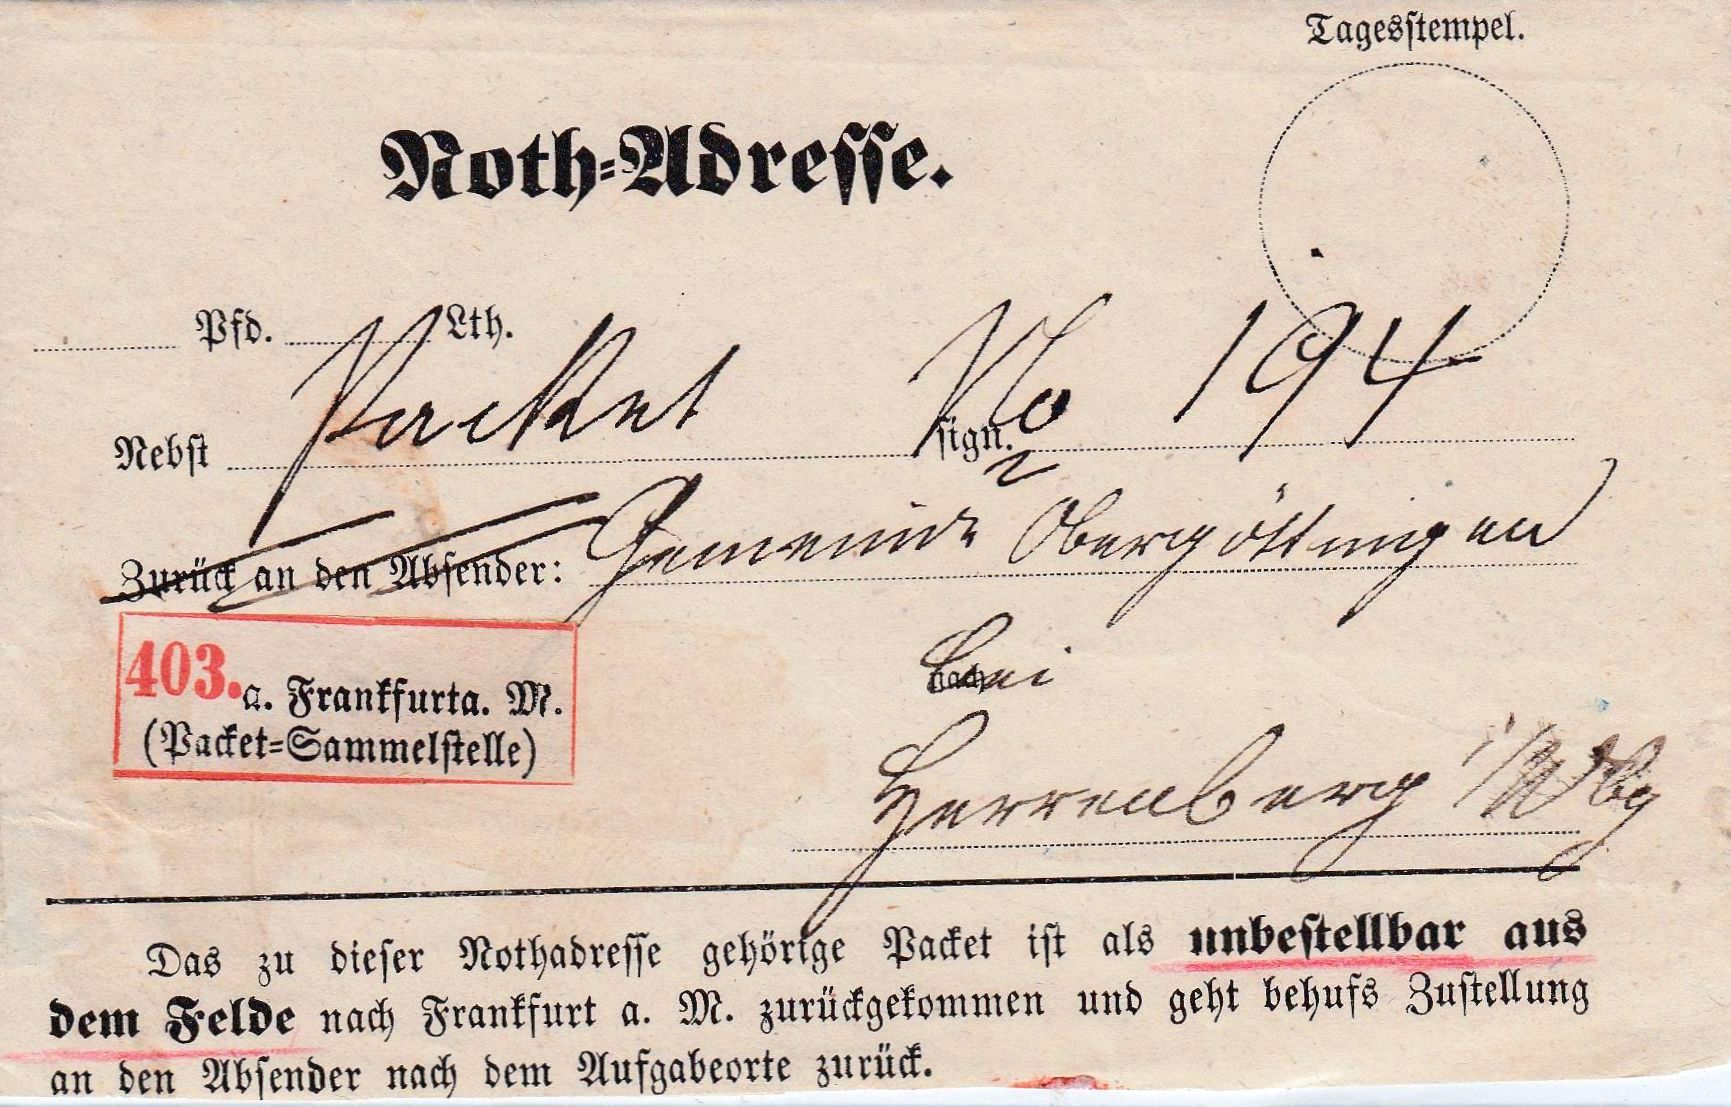 Tagesstempel.
Noth-Adresse.
Pfd. Lth.
Nebst Packet sign. No 194
Zurück an den Absender: Gemeinde
nach bei
Herrenberg i/Wbg
403. a. Frankfurt a. M.
(Packet-Sammelstelle)
Das zu dieser Nothadresse gehörige Packet ist als unbestellbar aus
dem Felde nach Frankfurt a. M. zurückgekommen und geht behufs Zustellung
an den Absender nach dem Aufgabeorte zurück.